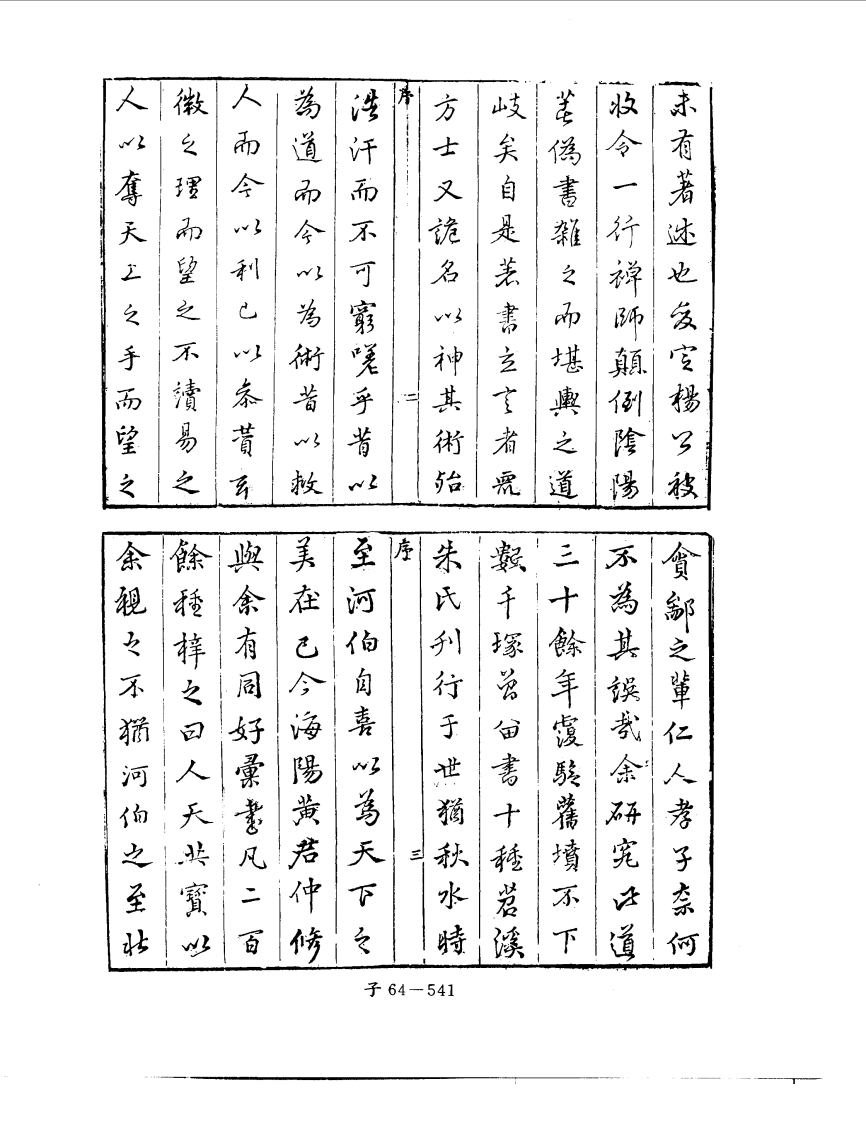 未有著述也爰定楊公被
收令一行禅師顛倒陰陽
並偽書雜之而堪輿之道
岐矣自是著書立言者咒
方士又詭名以神其術殆
序 二
浩汗而不可窮嗟乎昔以
為道而今以為術昔以救
人而今以利己以奈蕡玄
微之理而望之不讀易之
人以奪天上之手而望之
貪鄙之輩仁人孝子奈何
不為其誤哉余研究此道
三十餘年覆騐舊墳不下
數千塚曾留書十種苕溪
朱氏刋行于世猶秋水時
序 三
至河伯自喜以為天下之
美在己今海陽黄君仲修
與余有同好彙書凡二百
餘種梓之曰人天共寶以
余視之不猶河伯之至北
子 64—541